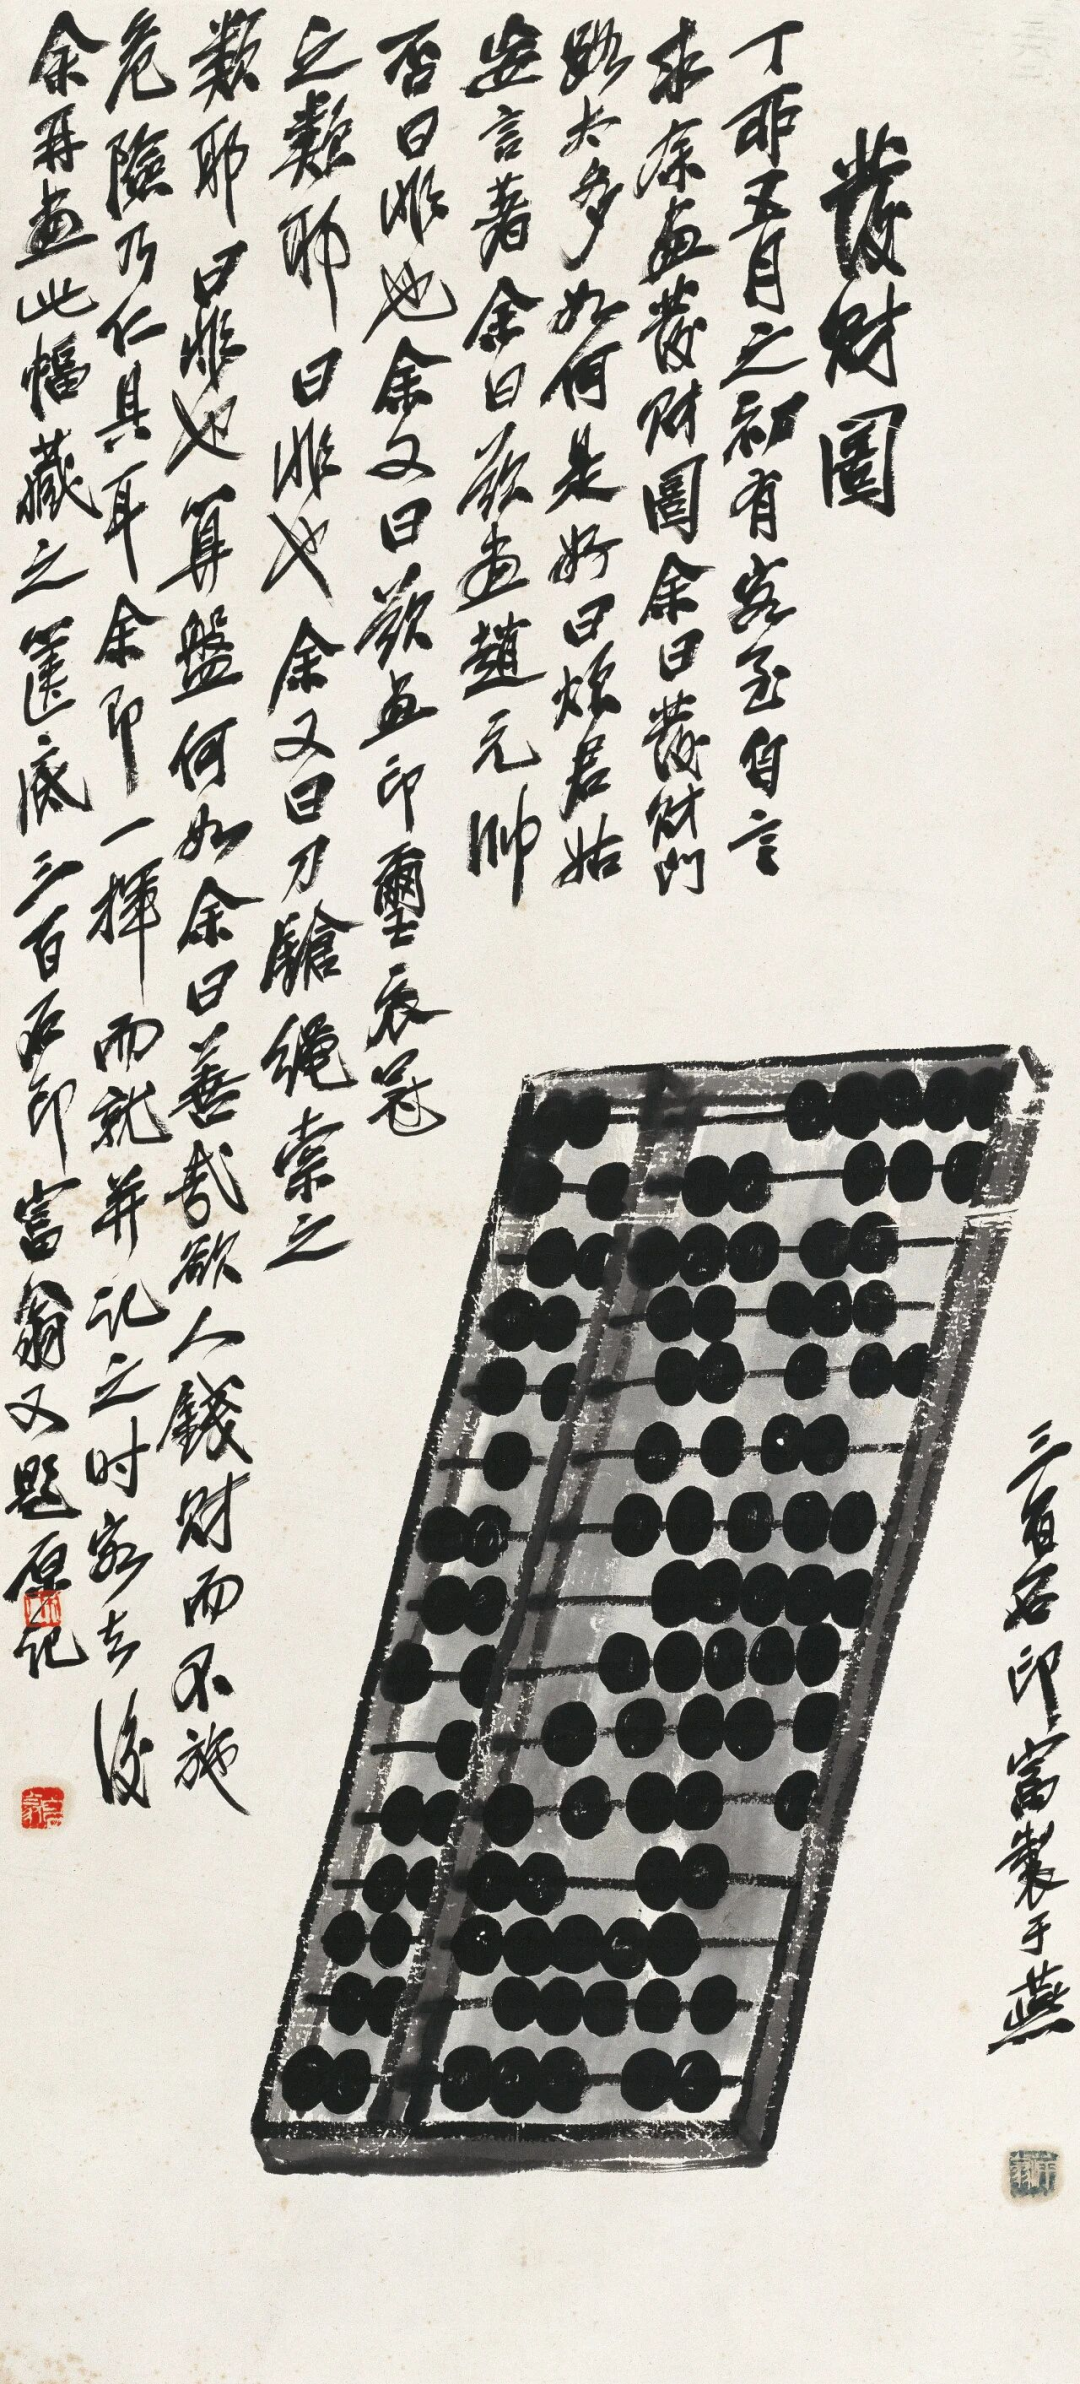 發財圖
丁卯五月之初有客至自言
求余画發財圖余曰發財門
路太多如何是好曰煩君姑
妄言著余曰欲画趙元帥
否曰非也余又曰欲画印璽衣冠
之類耶曰非也余又曰刀鎗繩索之
類耶曰非也算盤何如余曰善哉欲人錢財而不施
危險乃仁具耳余即一揮而就并記之时客去後
余再画此幅藏之篋底三百石印富翁又題原記
三百石印富製于燕